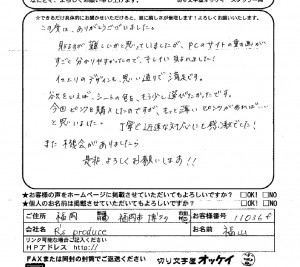 ☆できるだけ具体的にお聞かせいただけると、更に励みになり嬉しいです!よろしくお願いいたします。
この度は、ありがとうございました。
貼るのが難しいかと思っていましたが、PCのサイトの動画が
すごく分かりやすかったので、キレイに貼れました!
イメージのデザインも思い通りで満足です。
欲をいえば、シートの色を、もう少し選びたかったです。
今回ピンクを購入したのですが、もっと薄いピンクがあれば…
と思いました。丁寧で迅速な対応にも感激でした!
また機会がありましたら
是非よろしくお願いします!!
★お客様の声をホームページに掲載させていただいてもよろしいですか? □OK! □NO
★個人のお名前も掲載させていただいてもよろしいですか? □OK! □NO
ご住所 福岡 福岡市博多 お客様番号
会社名 R's produce お名前 福山
リンク可能な場合ご記入ください
HPアドレス http://
FAXまたは同封の封筒でご返送ください 切り文字屋オッケイ